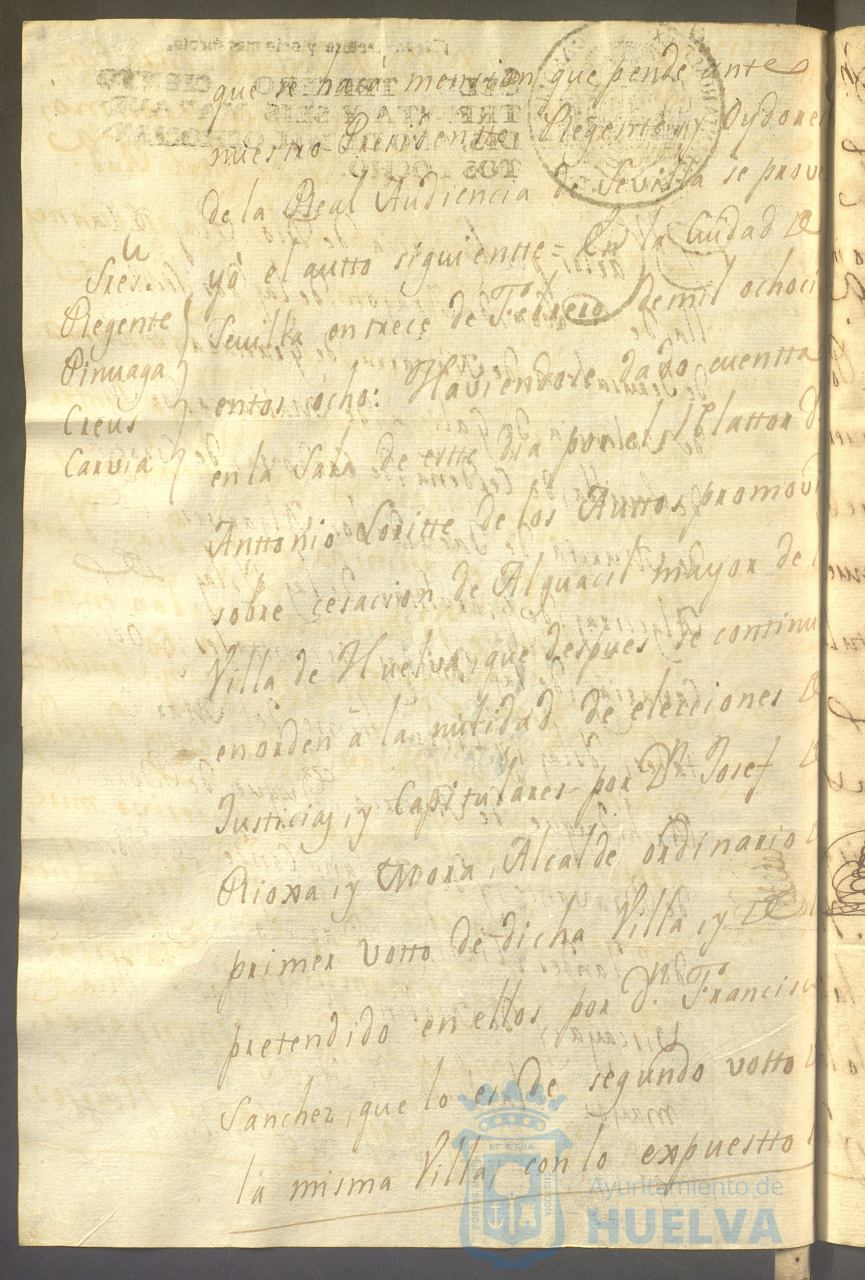 que se hace mension que pende ante
nuestro Presidentte Regente, y Oydore
de la Real Audiencia de Sevilla se prov
yó el autto siguientte = En la Ciudad de
Sevilla en trece de Febrero de mil ochoci
entos ocho: Haviendose dado cuentta
en la Sala de estte dia por el Relattor D
Anttonio Loritte de los Auttos promovi
sobre cesacion de Alguacil mayor de l
Villa de Huelva, que despues se continu
en orden á la nulidad de elecciones de
Justicias, y Capitulares por Dn Josef de
Rioxa, y Mora, Alcalde ordinario de
primer votto de dicha Villa, y de lo
pretendido en ellos por Dn Francisc
Sanchez, que lo es de segundo votto
la misma Villa, con lo expuestto
Sres
Regente
Pinuaga
Creus
Carvia
Ayuntamiento de
HUELVA